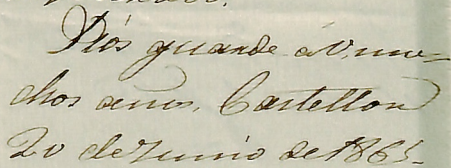 Dios guarde á V. mu=
chos años. Castellon
20 de Junio de 1865.